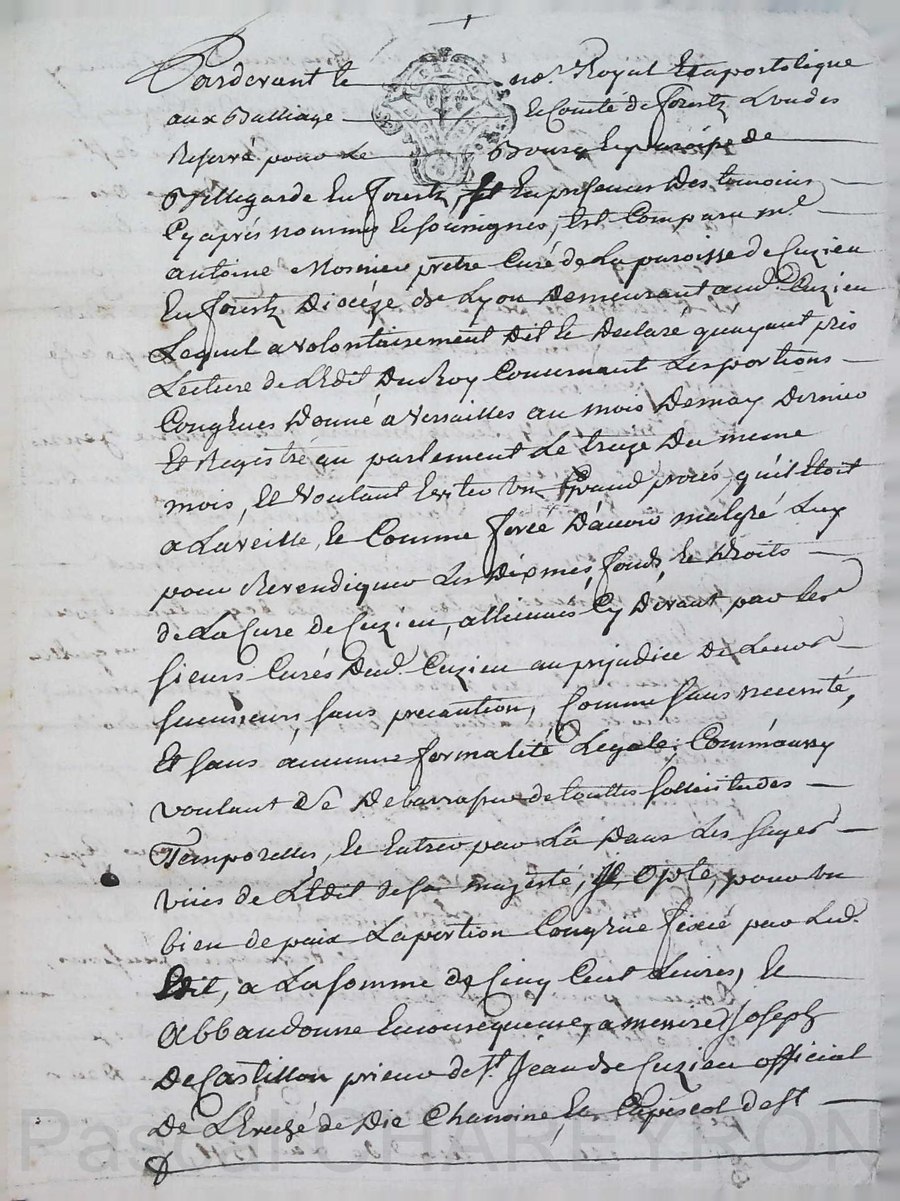 Pardevant le no.re Royal Et apostolique
aux Balliage le Comté de forestz L'un des
Reservé pour Le Bourg Et paroisse de
Bellegarde En forestz, Et En presence Des temoins
Cy après nommés Et soussignés, Est Comparu m.e
antoine prêtre Curé de La paroisse de Cuzieu
En forestz Diocése de Lyon Demeurant aud. Cuzieu
Lequel a volontairement Dit Et Declaré qu'ayant pris
Lecture de L'Edit Du Roy Concernant Les portions
Congrues Donné a Versailles au mois De may Dernier
Et Registré au parlement Le treze Du meme
mois, Et Voulant Eviter Un Grand procés, qu'il Etoit
a La veille, Et Comme forcé D'avoir malgré Luy
pour Revendiquer Les Dixmes, fonds, Et Droits
de La Cure de Cuzieu, allienués Cy Devant par les
sieurs Curés Dud. Cuzieu au prejudice De Leurs
successeurs, sans precaution, Comme sans necessité,
Et sans aucune formalité Legale, Comm'aussy
voulant Se Debarrasser de touttes sollicitudes
Temporelles, Et Entrer par La Dans Les sages
vües de L'Edit de sa majesté, Il Opte, pour Un
bien de paix La portion Congrue fixée par Led.
Edit, a La somme de Cinq Cent Livres, Et
Abbandonne En consequense, a messire Joseph
De Castillon prieur de St. Jean de Cuzieu official
De L'Evéché de Die Chanoine Et Capiscol de St
Pascal CHAREYRON